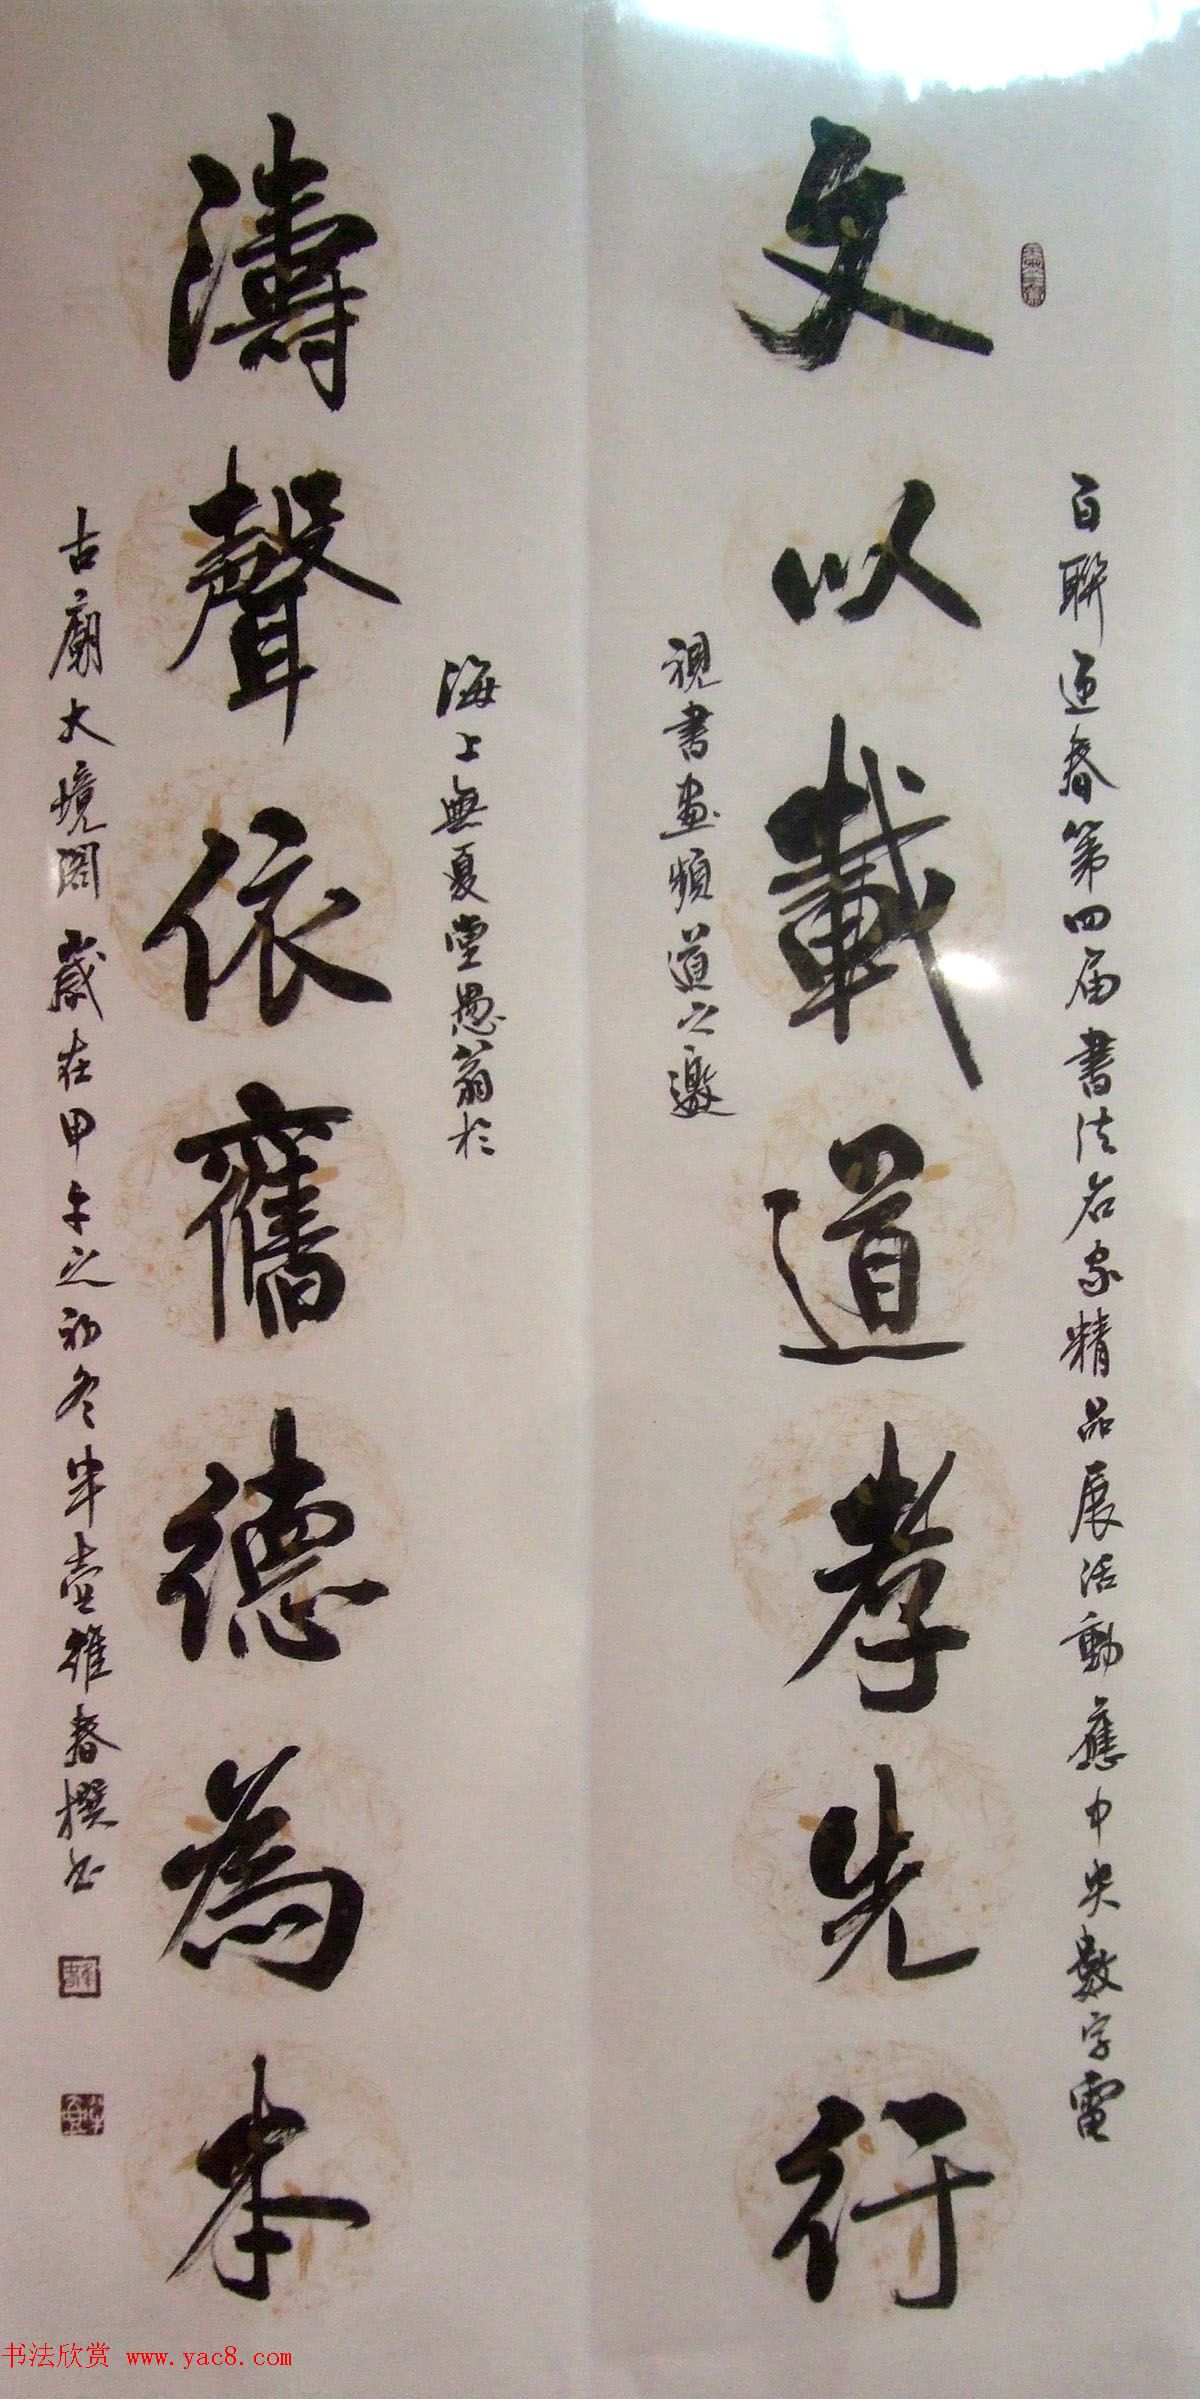 文以載道孝先行
百聯迎春第四届書法名家精品展活動應中央數字電
視書畫頻道之邀
濤聲依舊德為本
海上無夏堂愚翁於
古廟大境閣歲在甲午之初冬半壺維春撰书
书法欣赏 www.yac8.com